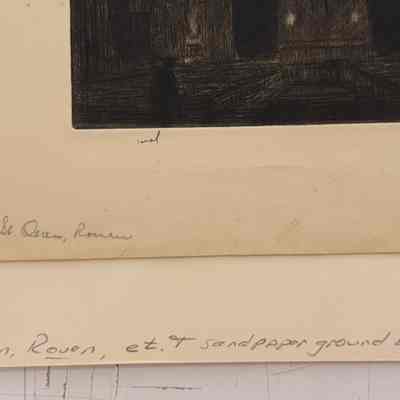 St. Ouen, Rouen
n, Rouen, et. & sandpaper ground